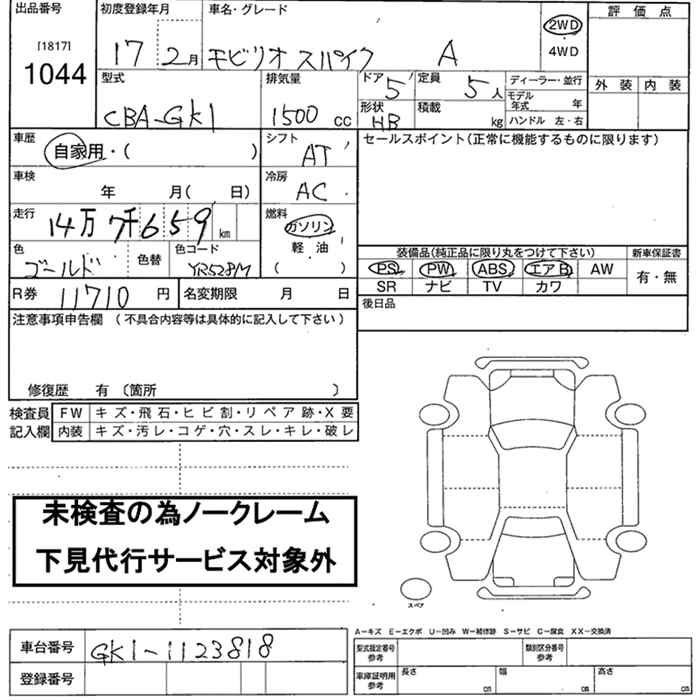 出品番号
[1817]
1044
初度登録年月
17 2月
車名・グレード
モビリオ スパイク A
2WD
4WD
評価点
外装 内装
型式
CBA-GK1
排気量
1500 cc
ドア 5
形状 HB
定員 5人
積載 kg
ディーラー・並行
モデル年式 年
ハンドル 左・右
車歴
自家用・( )
シフト
AT
セールスポイント(正常に機能するものに限ります)
車検
年 月( 日)
冷房
AC
走行
14万7千659km
燃料
ガソリン
軽油
( )
色
ゴールド
色替
色コード
YR528M
装備品(純正品に限り丸をつけて下さい)
新車保証書
PS PW ABS エアB AW
SR ナビ TV カワ
有・無
R券 11710 円
名変期限 月 日
後日品
注意事項申告欄 (不具合内容等は具体的に記入して下さい)
修復歴 有 〔箇所 〕
検査員記入欄
FW キズ・飛石・ヒビ割・リペア跡・X要
内装 キズ・汚レ・コゲ・穴・スレ・キレ・破レ
未検査の為ノークレーム
下見代行サービス対象外
スペア
A−キズ E−エクボ U−凹み W−補修跡 S−サビ C−腐食 XX−交換済
車台番号 GK1-1123818
登録番号
型式指定番号 参考
類別区分番号 参考
車庫証明用 参考
長さ cm
幅 cm
高さ cm